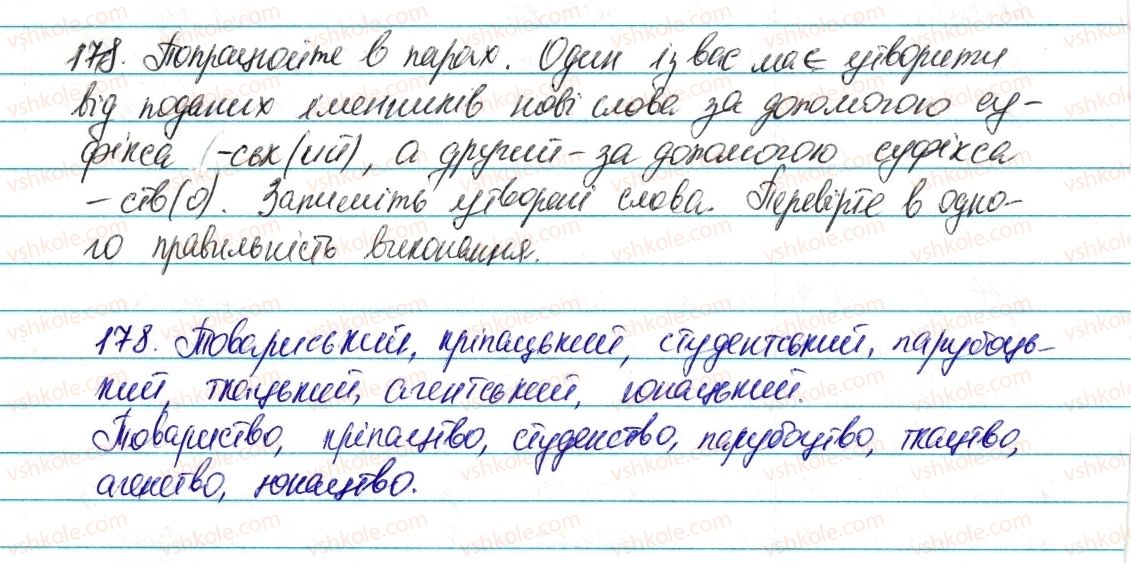 178. Попрацюйте в парах. Один із вас має утворити
від поданих іменників нові слова за допомогою су-
фікса (-ськ(ий), а другий - за допомогою суфікса
- ств(о). Запишіть утворені слова. Перевірте в одно-
го правильність виконання.
178. Товариський, кріпацький, студентський, парубоць-
кий, ткацький, агентський, юнацький.
Товариство, кріпацтво, студенство, парубоцтво, ткацтво,
агенство, юнацтво.